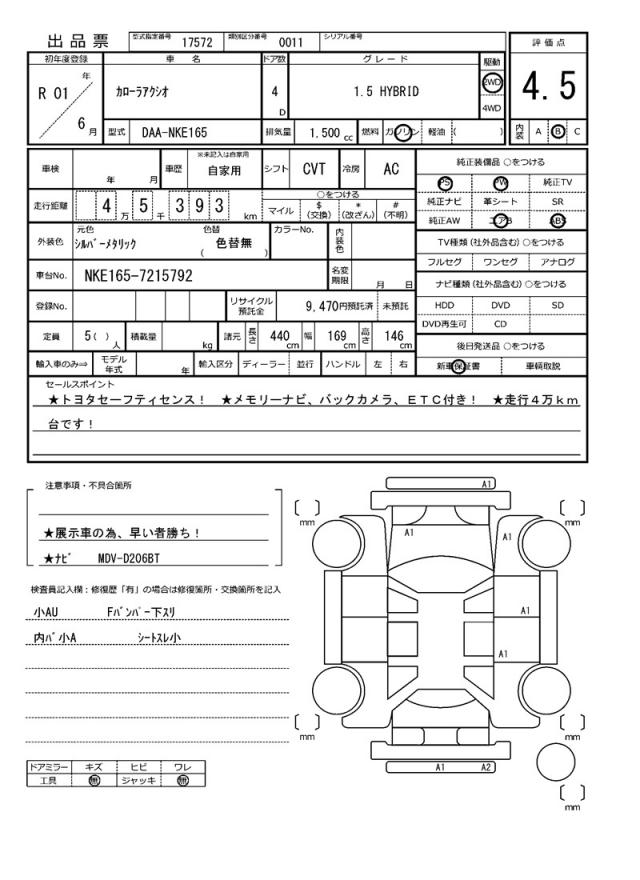 出品票 型式指定番号 17572 類別区分番号 0011 シリアル番号
評価点
4.5
内装 A B C
初年度登録 車名 ドア数 グレード 駆動
R 01 年 6 月 カローラアクシオ 4 D 1.5 HYBRID 2WD 4WD
型式 DAA-NKE165 排気量 1.500 cc 燃料 ガソリン 軽油 ( )
車検 年 月 車歴 ※未記入は自家用 自家用 シフト CVT 冷房 AC
走行距離 4 万 5 千 3 9 3 km ○をつける
マイル $ (交換) * (改ざん) # (不明)
外装色 元色 シルバーメタリック 色替 ( 色替無 ) カラーNo. 内装色
車台No. NKE165-7215792 名変期限 月 日
登録No. リサイクル預託金 9.470円預託済 未預託
定員 5( ) 人 積載量 kg 諸元 長さ 440 cm 幅 169 cm 高さ 146 cm
輸入車のみ⇒ モデル年式 年 輸入区分 ディーラー 並行 ハンドル 左 右
純正装備品 ○をつける
PS PW 純正TV
純正ナビ 革シート SR
純正AW エアB ABS
TV種類 (社外品含む) ○をつける
フルセグ ワンセグ アナログ
ナビ種類 (社外品含む) ○をつける
HDD DVD SD
DVD再生可 CD
後日発送品 ○をつける
新車保証書 車輌取説
セールスポイント
★トヨタセーフティセンス! ★メモリーナビ、バックカメラ、ETC付き! ★走行4万km
台です!
注意事項・不具合箇所
★展示車の為、早い者勝ち!
★ナビ MDV-D206BT
検査員記入欄：修復歴「有」の場合は修復箇所・交換箇所を記入
小AU Fバンパー下スリ
内バ小A シートスレ小
ドアミラー キズ ヒビ ワレ
工具 無 ジャッキ 無
A1
[ ] mm [ ] mm
A1 A1
A1
A1
[ ] mm [ ] mm
A1 A2
[ ] mm